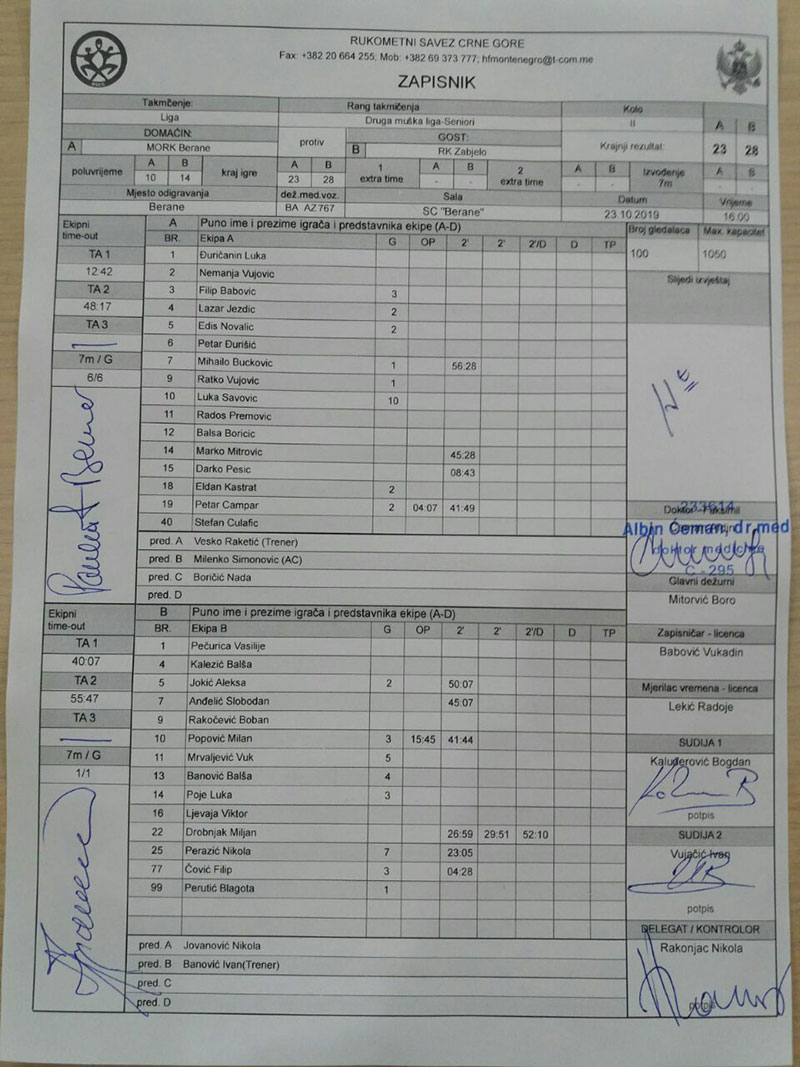 RUKOMETNI SAVEZ CRNE GORE
Fax: +382 20 664 255; Mob: +382 69 373 777; hfmontenegro@t-com.me
ZAPISNIK
Takmčenje: Rang takmičenja Kolo A B
Liga Druga muška liga-Seniori II
DOMAĆIN: protiv GOST: Krajnji rezultat: 23 28
A MORK Berane B RK Zabjelo
poluvrijeme A B kraj igre A B 1 extra time A B 2 extra time A B Izvođenje 7m A B
10 14 23 28 - - - - - -
Mjesto odigravanja dež.med.voz. Sala Datum Vrijeme
Berane BA AZ767 SC "Berane" 23.10.2019 16:00
Ekipni time-out A Puno ime i prezime igrača i predstavnika ekipe (A-D) Broj gledalaca Max. kapacitet
BR. Ekipa A G OP 2' 2' 2'/D D TP 100 1050
TA 1 1 Đuričanin Luka
12:42 2 Nemanja Vujovic Slijedi izvještaj
TA 2 3 Filip Babovic 3
48:17 4 Lazar Jezdic 2
TA 3 5 Edis Novalic 2
6 Petar Đurišić
7m / G 7 Mihailo Buckovic 1 56:28
6/6 9 Ratko Vujovic 1
10 Luka Savovic 10
11 Rados Premovic
12 Balsa Boricic
14 Marko Mitrovic 45:28
15 Darko Pesic 08:43
18 Eldan Kastrat 2
19 Petar Campar 2 04:07 41:49
40 Stefan Culafic
pred. A Vesko Raketić (Trener)
pred. B Milenko Simonovic (AC)
pred. C Boričić Nada
pred. D
Albin Ćeman, dr med
C - 295
Glavni dežurni
Mitorvić Boro
Ekipni time-out B Puno ime i prezime igrača i predstavnika ekipe (A-D)
BR. Ekipa B G OP 2' 2' 2'/D D TP Zapisničar - licenca
TA 1 1 Pečurica Vasilije Babović Vukadin
40:07 4 Kalezić Balša
TA 2 5 Jokić Aleksa 2 50:07 Mjerilac vremena - licenca
55:47 7 Anđelić Slobodan 45:07 Lekić Radoje
TA 3 9 Rakočević Boban
10 Popović Milan 3 15:45 41:44 SUDIJA 1
7m / G 11 Mrvaljević Vuk 5 Kaluđerović Bogdan
1/1 13 Banović Balša 4
14 Poje Luka 3
16 Ljevaja Viktor potpis
22 Drobnjak Miljan 26:59 29:51 52:10 SUDIJA 2
25 Perazić Nikola 7 23:05 Vujačić Ivan
77 Čović Filip 3 04:28
99 Perutić Blagota 1
potpis
DELEGAT / KONTROLOR
pred. A Jovanović Nikola Rakonjac Nikola
pred. B Banović Ivan(Trener)
pred. C
pred. D potpis